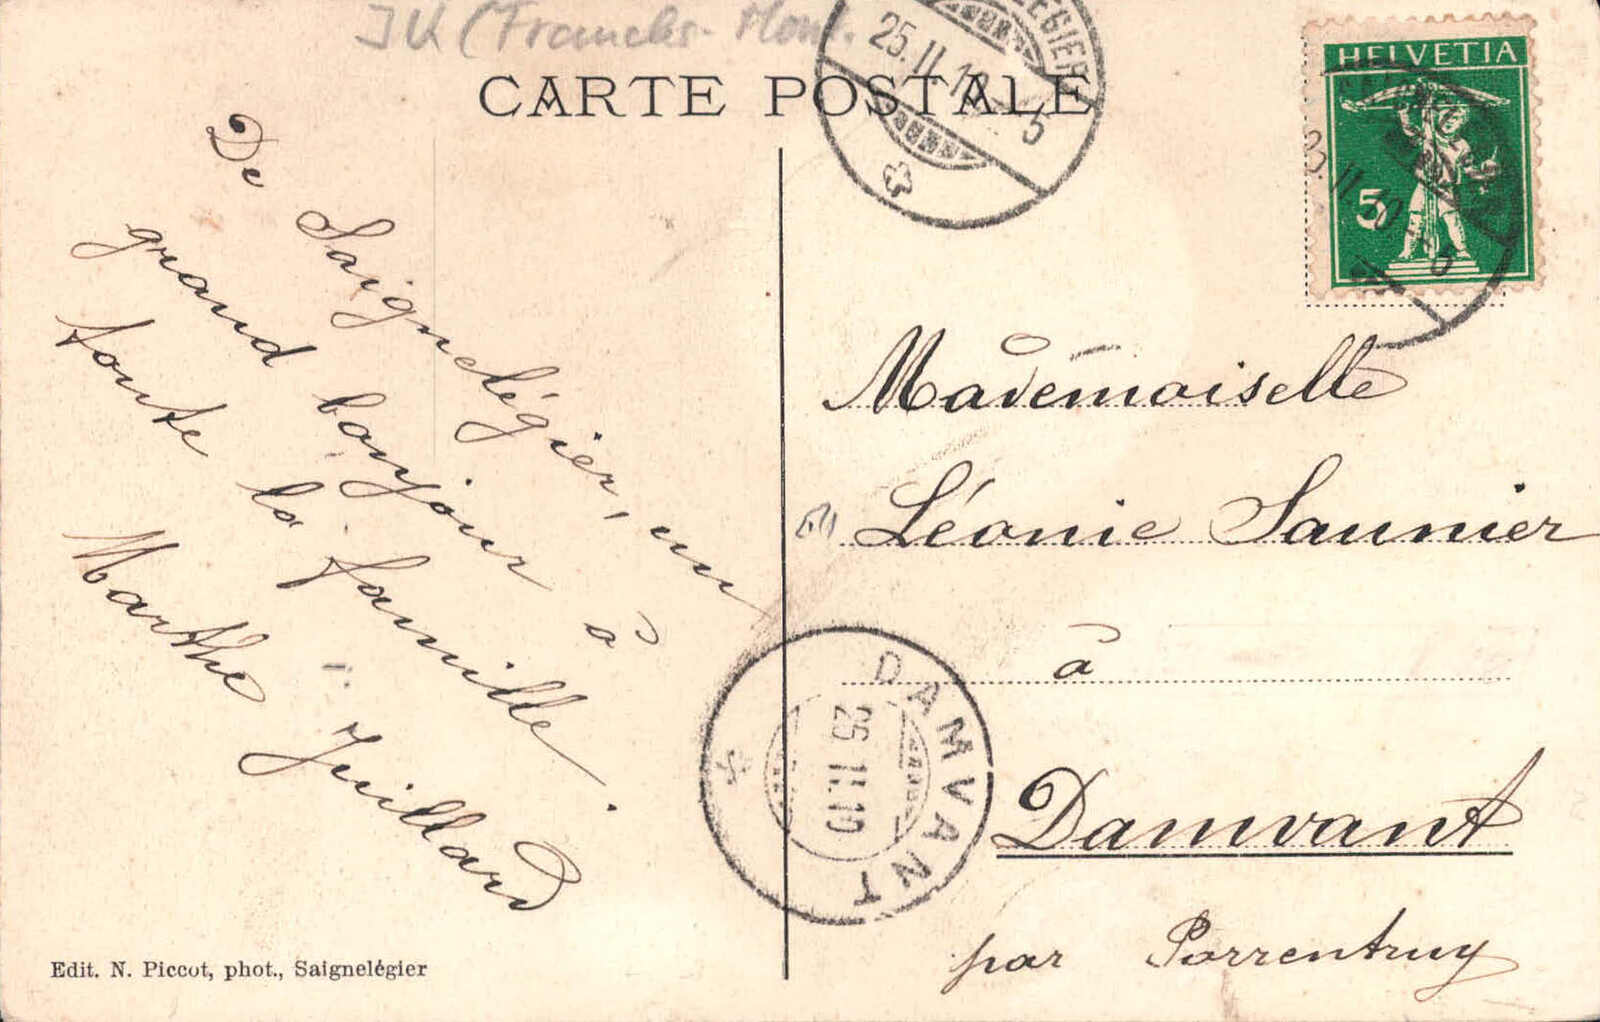 JU (Franches-Mont.
CARTE POSTALE
25.II.10. 5
HELVETIA
5
De Saignelégier, un
grand bonjour à
toute la famille.
Marthe Juillard
Mademoiselle
Léonie Saunier
à
Damvant
par Porrentruy
DAMVANT
26.II.10
Edit. N. Piccot, phot., Saignelégier